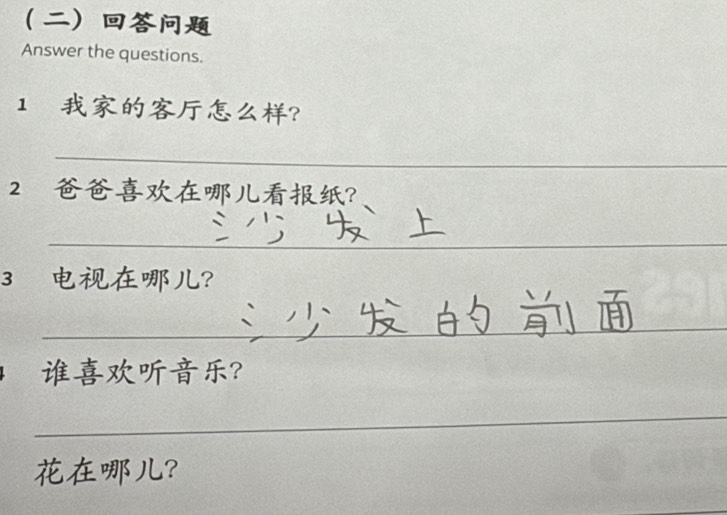 （二）回答问题
Answer the questions.
1 我家的客厅怎么样?
2 爸爸喜欢在哪儿看报纸?
沙发上
3 电视在哪儿?
沙发的前面
谁喜欢听音乐?
花在哪儿?